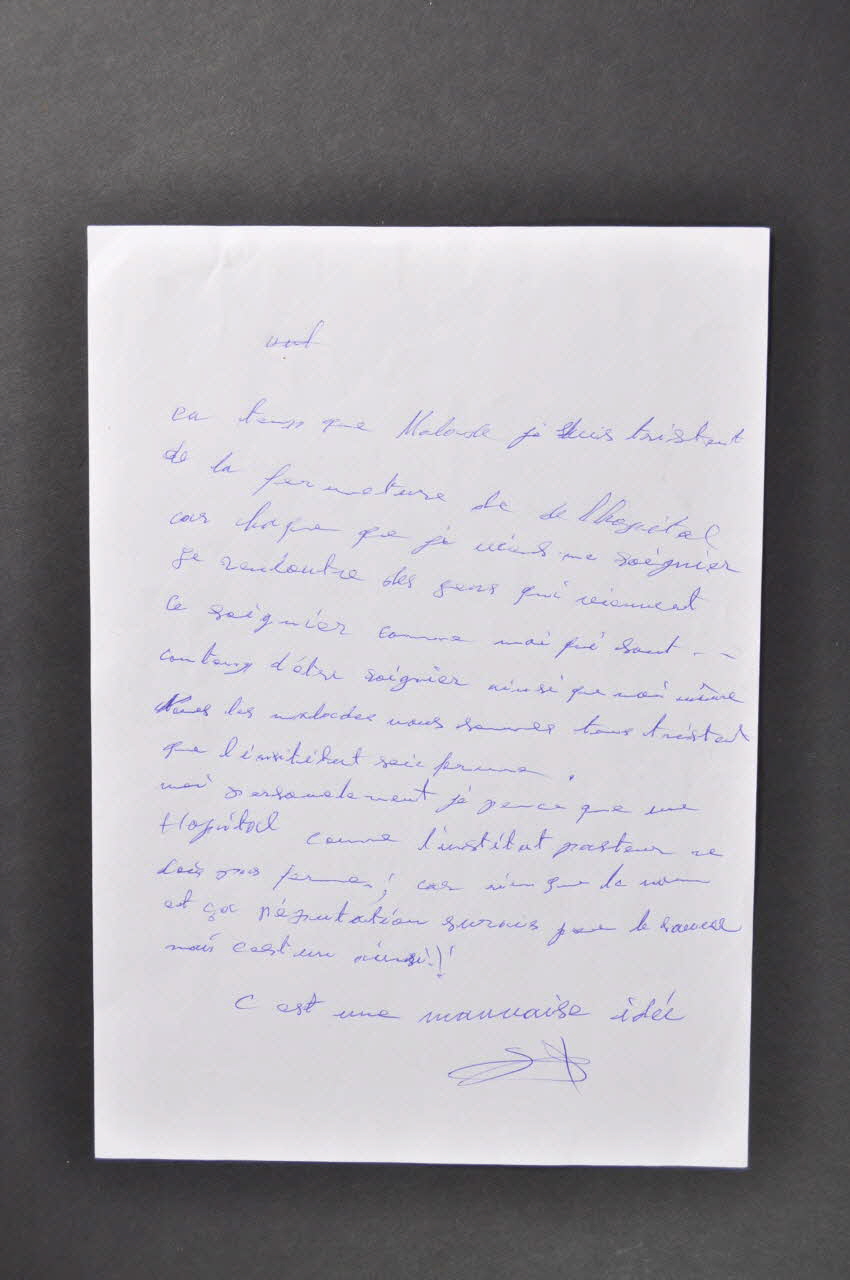 en temp que Malade je suis tristent
de la fermeture de de l'hopital
car chaque que je viens me soignier
je rencontre des gens qui viennent
ce soignier comme moi qui sont - -
contemp d'être soignier ainsi que moi même
Nous les malades nous sommes tous tristent
que l'institut soit ferme.
moi personelement je pence que une
Hopital comme l'institut pasteur ne
dois pas ferme.! car rien que la nom
et ça réputation pue le
mais c'est ainsi!!
C est une mauvaise idée